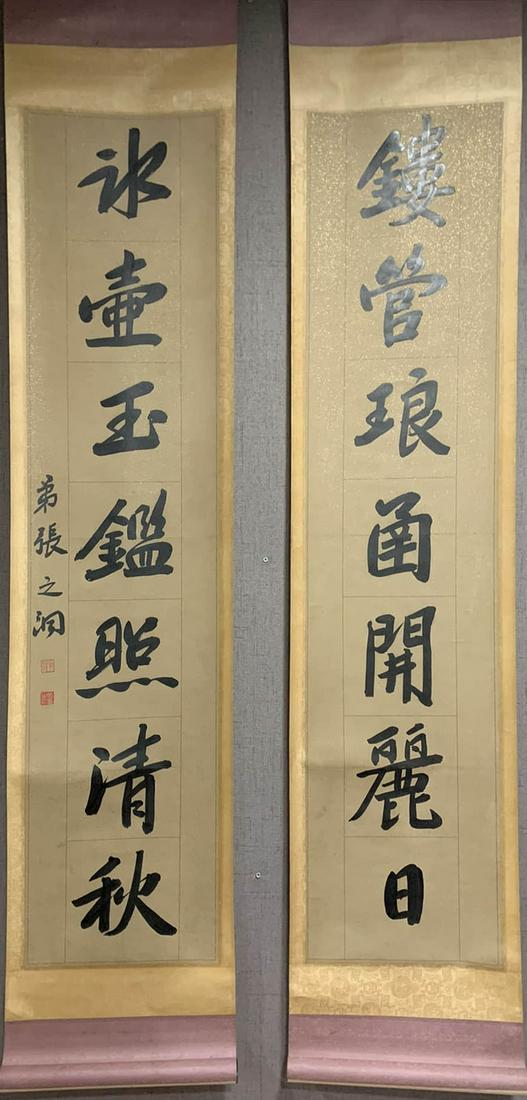 鏤管琅函開麗日
冰壺玉鑑照清秋
弟張之洞